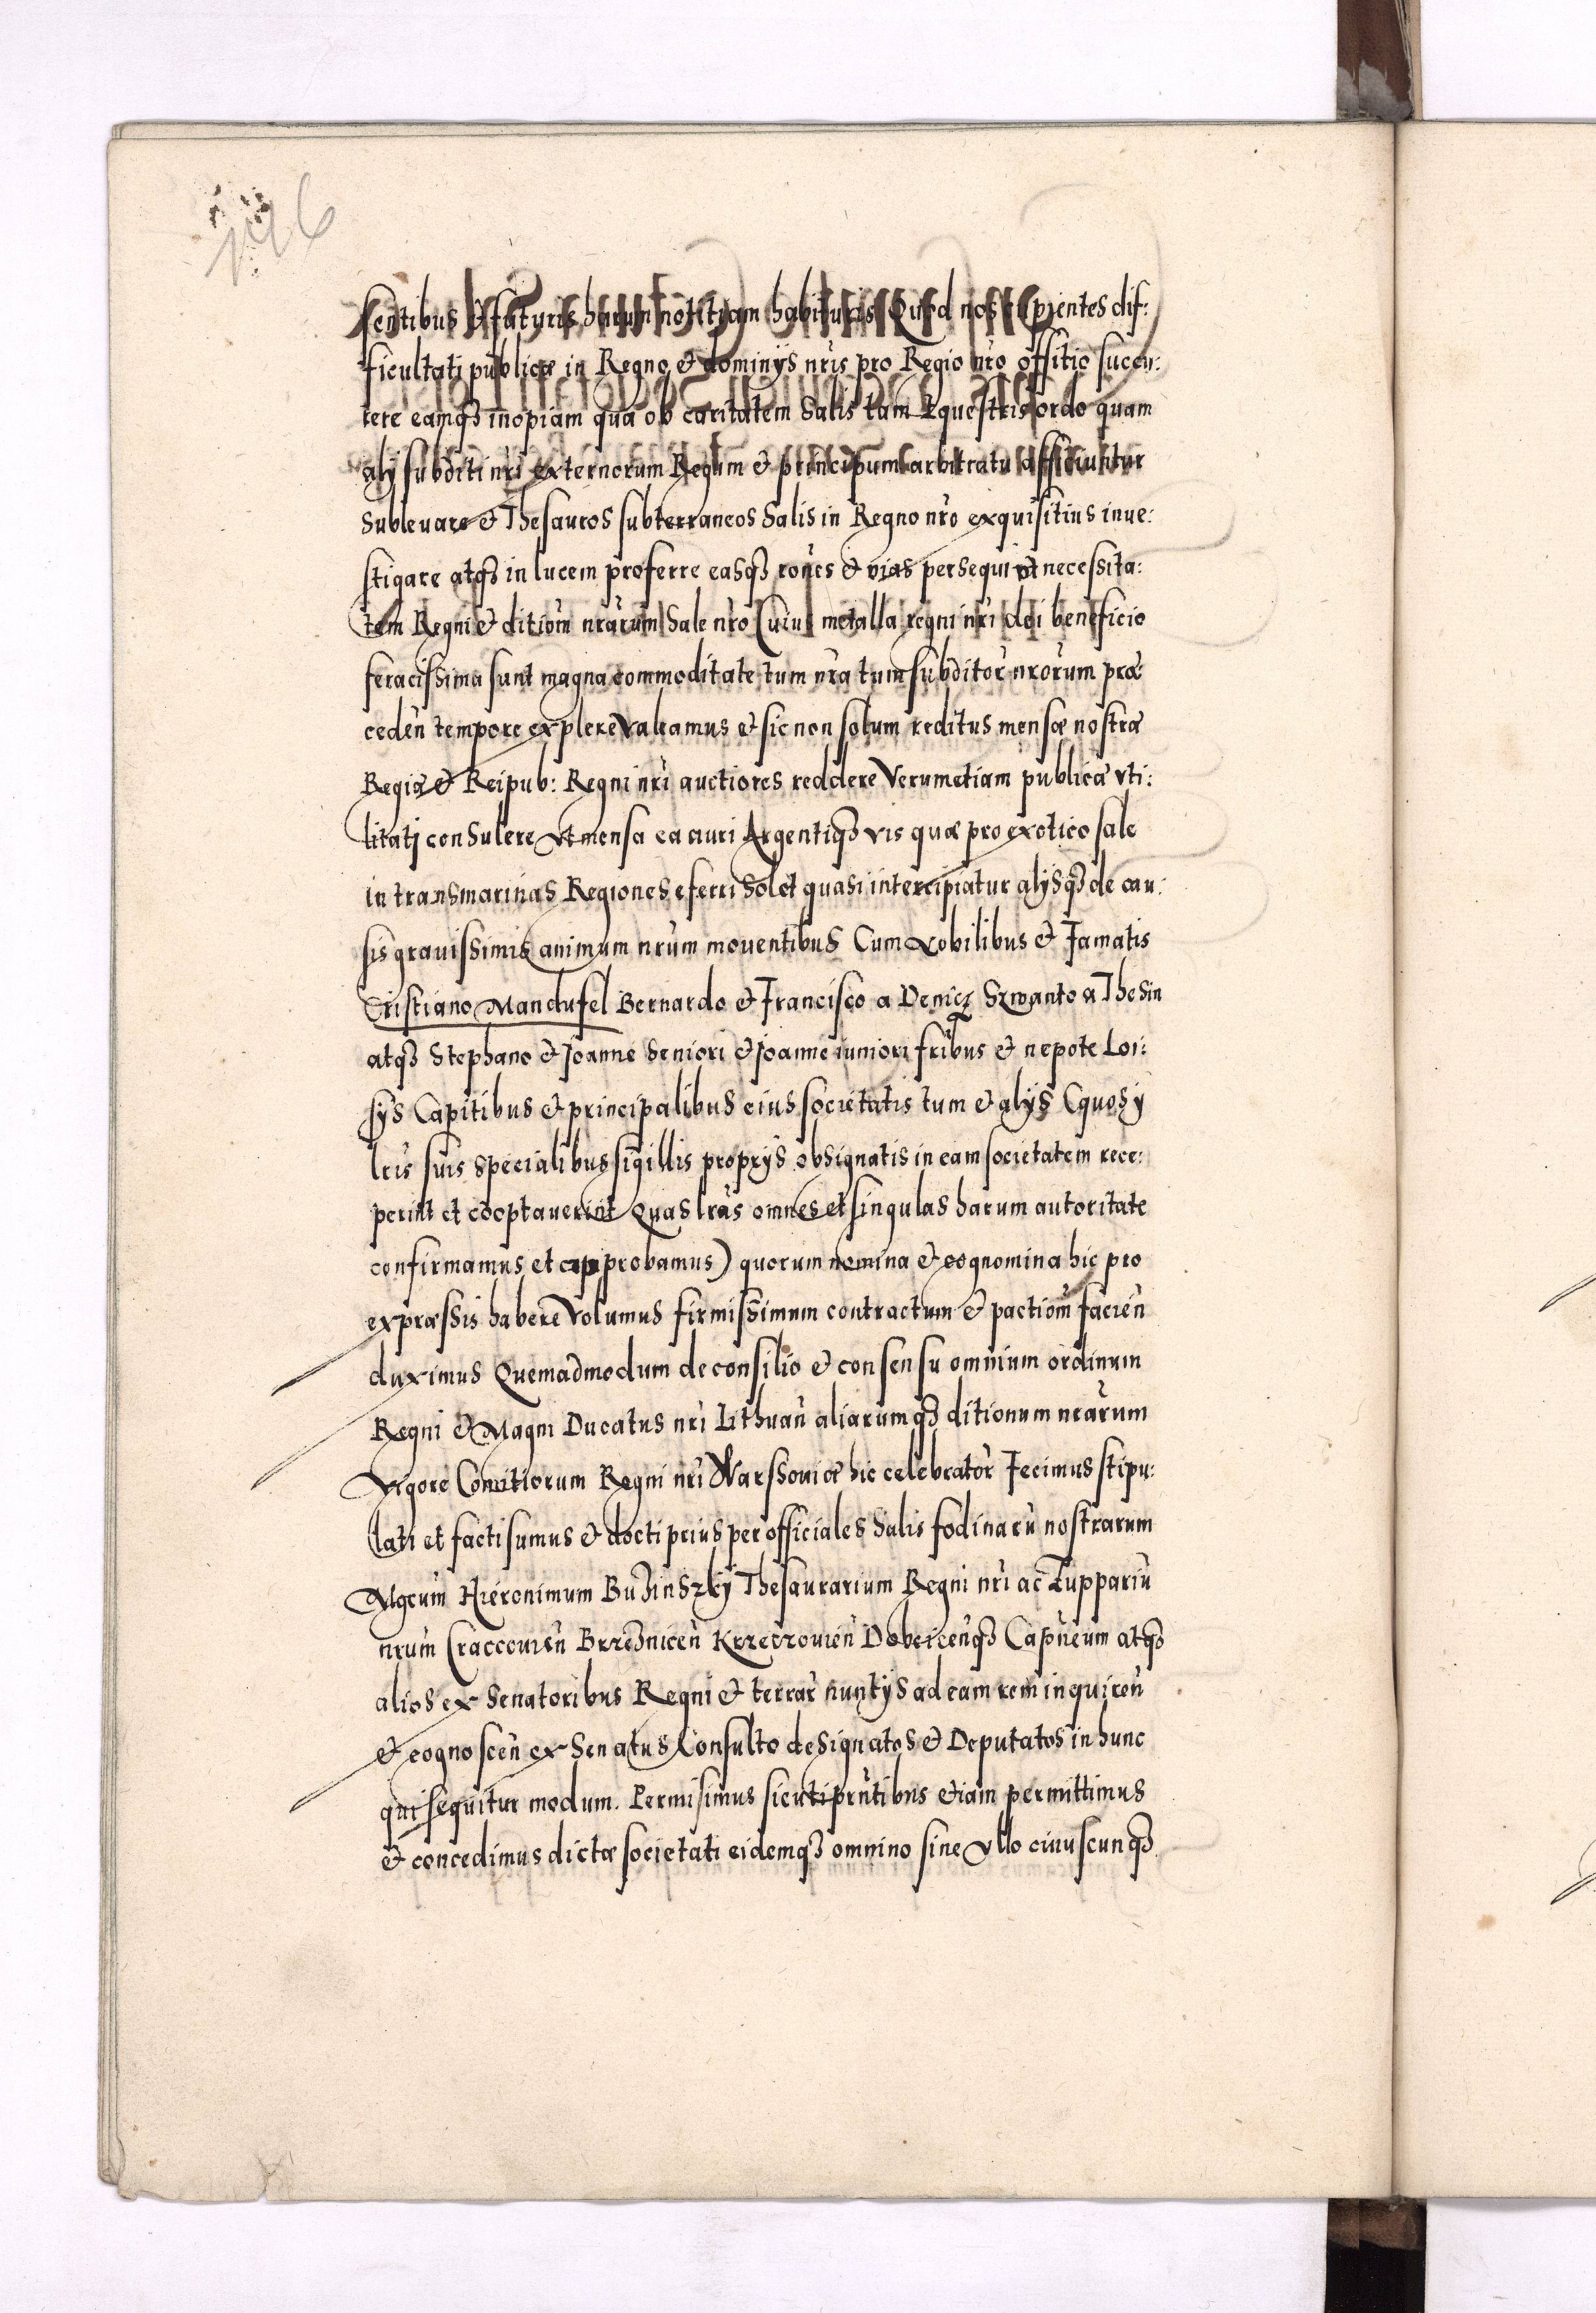 146
sentibus & futuris harum notitiam habituris Quod nos cupientes dif:
ficultati publicæ in Regno & dominijs nr̃is pro Regio nr̃o offitio succu:
rere eamqȝ inopiam qua ob caritatem Salis tam Equestris ordo quam
alij subditi nr̃i externorum Regum & principum arbitratu afficiuntur
Subleuare & Thesauros subterraneos Salis in Regno nr̃o exquisitius inue:
stigare atqȝ in lucem proferre easqȝ rões & vias persequi vt necessita:
tem Regni & ditiom̃ nr̃arum Sale nr̃o Cuius metalla regni nr̃i dei beneficio
feracissima sunt magna commoditate tum nr̃a tum subditor̃ nr̃orum præ
ceden̄ tempore explere Valeamus & sic non solum reditus mensæ nostræ
Regiæ & Reipub: Regni nr̃i auctiores reddere Verumetiam publicæ vti:
litati conSulere Vt mensa ea auri Argentiqȝ vis quæ pro exotico sale
in transmarinas Regiones eferri Solet quasi intercipiatur alijsqȝ de cau:
sis grauissimis animum nr̃um mouentibus Cum Nobilibus & Famatis
Cristiano Mandufel Bernardo & Francisco a Denicz Szwanto a Thesin
atqȝ Stephano & Joanne Seniori & Joanne iuniori fr̃ibus & nepote Loi:
sys Capitibus & principalibus eius societatis tum & alijs (quos ij
lr̃is suis specialibus sigillis proprijs obsignatis in eam societatem rece:
perint et cooptauerint Quas lr̃as omnes et singulas harum autoritate
confirmamus et approbamus) quorum nomina & cognomina hic pro
expræssis habere Volumus firmissimum contractum & pactiom̃ facien̄
duximus Quemadmodum de consilio & consensu omnium ordinum
Regni & Magni Ducatus nr̃i Lithuan̄ aliarumqȝ ditionum nr̃arum
Vigore Comitiorum Regni nr̃i Warssouiæ hic celebrator̃ Fecimus stipu:
lati et facti sumus & docti prius per officiales Salis fodinarũ nostrarum
Mgcum̃ Hieronimum Buzinszky Thesaurarium Regni nr̃i ac Zuppariũ
nr̃um Craccouien̄ Brzeznicen̄ Krzeczouien̄ Dobcicen̄qȝ Capn̄eum atqȝ
alios ex Senatoribus Regni & terrar̃ nuntijs ad eam rem inquiren̄
& cognoscen̄ ex Senatus Consulto designatos & Deputatos in hunc
qui sequitur modum. Permisimus sicuti pr̃ntibus etiam permittimus
& concedimus dictæ societati eidemqȝ omnino sine Vllo cuiuscunqȝ